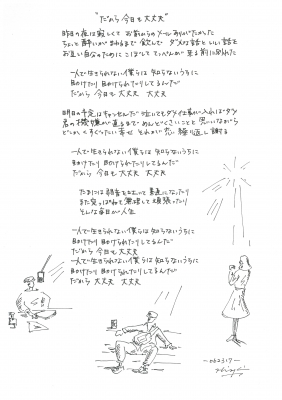 "だから今日も大丈夫"
昨日の夜は寂しくて お前からのメールありがたかった
ちょいと酔いが まわるまで 飲んで ダメな話と いい話を
お互い自分のために こぼして てっぺんが 来る前に別れた
一人で生きられない僕らは 知らないうちに
助けたり 助けられたりしてるんだ
だから 今日も 大丈夫 大丈夫
明日の予定はキャンセルだ
君の機嫌が直るまで めんどくさいことと 思いながら
どこか くすぐったい幸せ それが恋 繰り返し 謝る
一人で生きられない僕らは 知らないうちに
助けたり 助けられたりしてるんだ
だから 今日も 大丈夫 大丈夫
たまには弱音をこぼして 素直になったり
また突っぱねて 無理して 頑張ったり
そんな毎日が人生
一人で生きられない僕らは 知らないうちに
助けたり 助けられたりしてるんだ
だから 今日も 大丈夫
一人で生きられない僕らは 知らないうちに
助けたり 助けられたりしてるんだ
だから 今日も 大丈夫 大丈夫